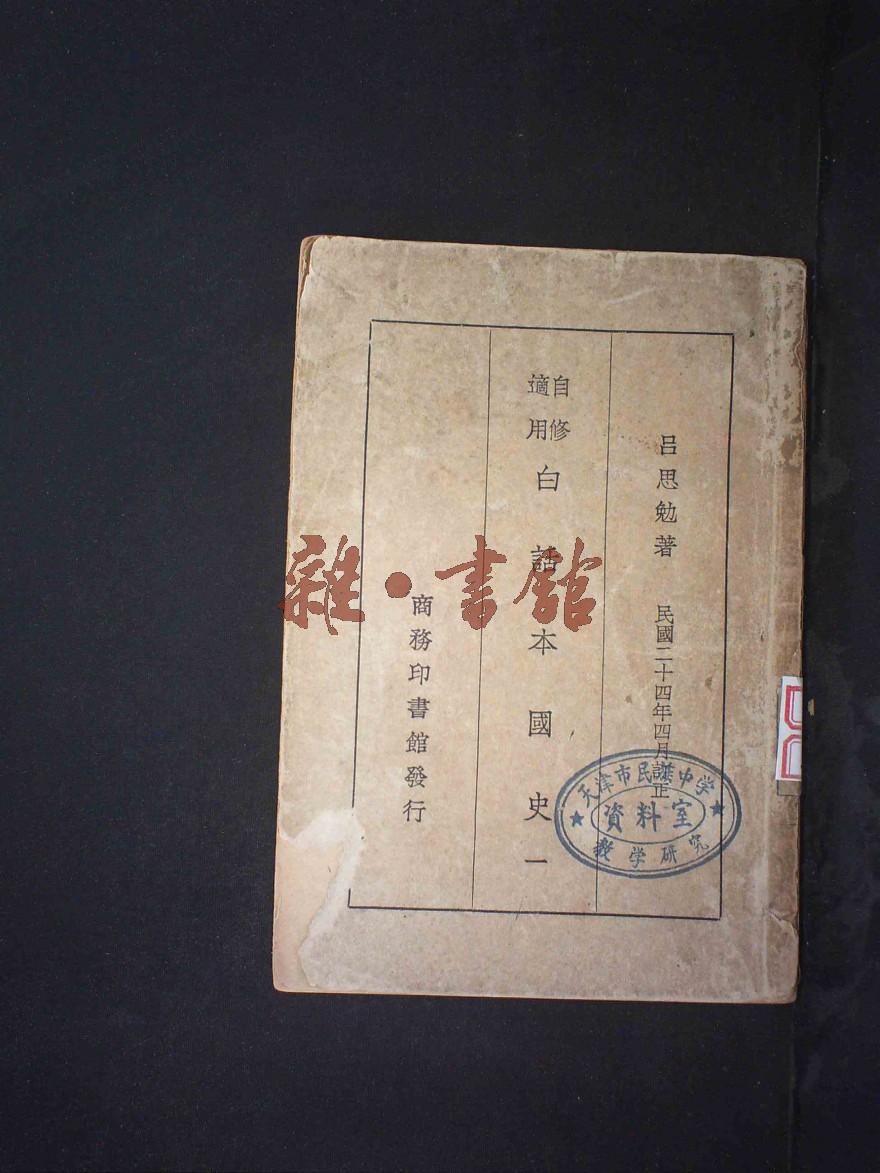 呂思勉著 民國二十四年四月訂正
自修
適用
白話本國史 一
商務印書館發行
天津市民謙中学
資料室
教学研究
雜·書館